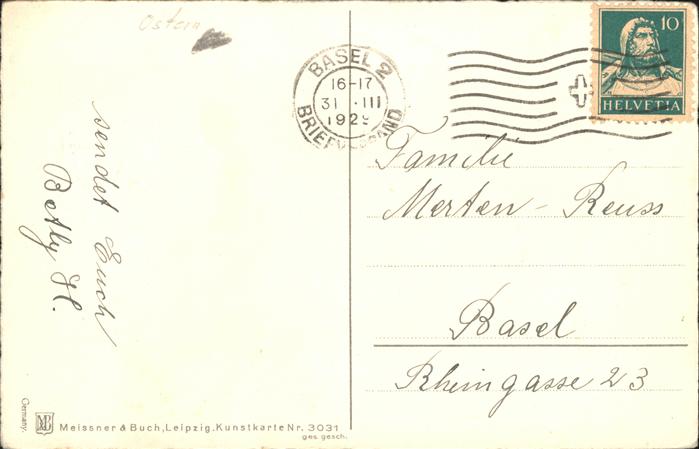 Ostern
BASEL 2
16-17
31 . III
1929
BRIEFVERSAND
10
HELVETIA
sendet Euch
Betly H.
Familie
Merten - Reuss
Basel
Rheingasse 23
Germany.
MB
Meissner & Buch, Leipzig. Kunstkarte Nr. 3031
ges. gesch.